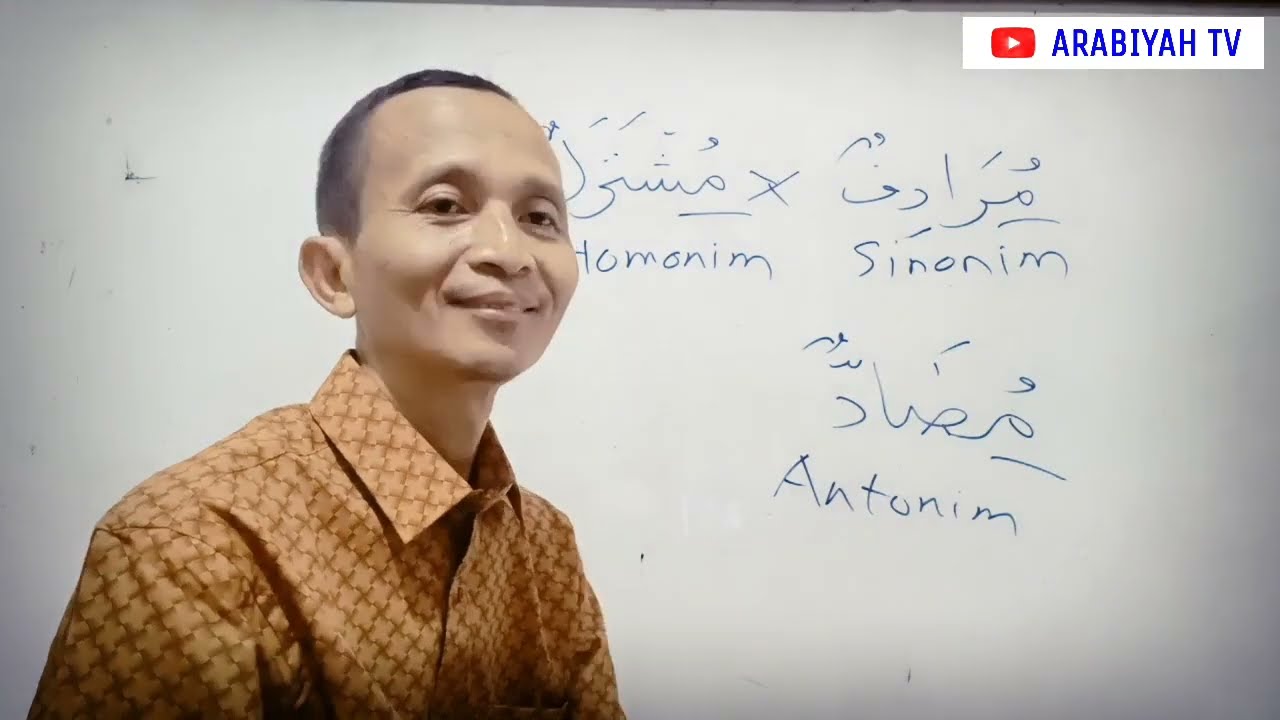 ARABIYAH TV
مُرَادِفٌ × مُشْتَرَكٌ
Sinonim Homonim
مُضَادٌّ
Antonim